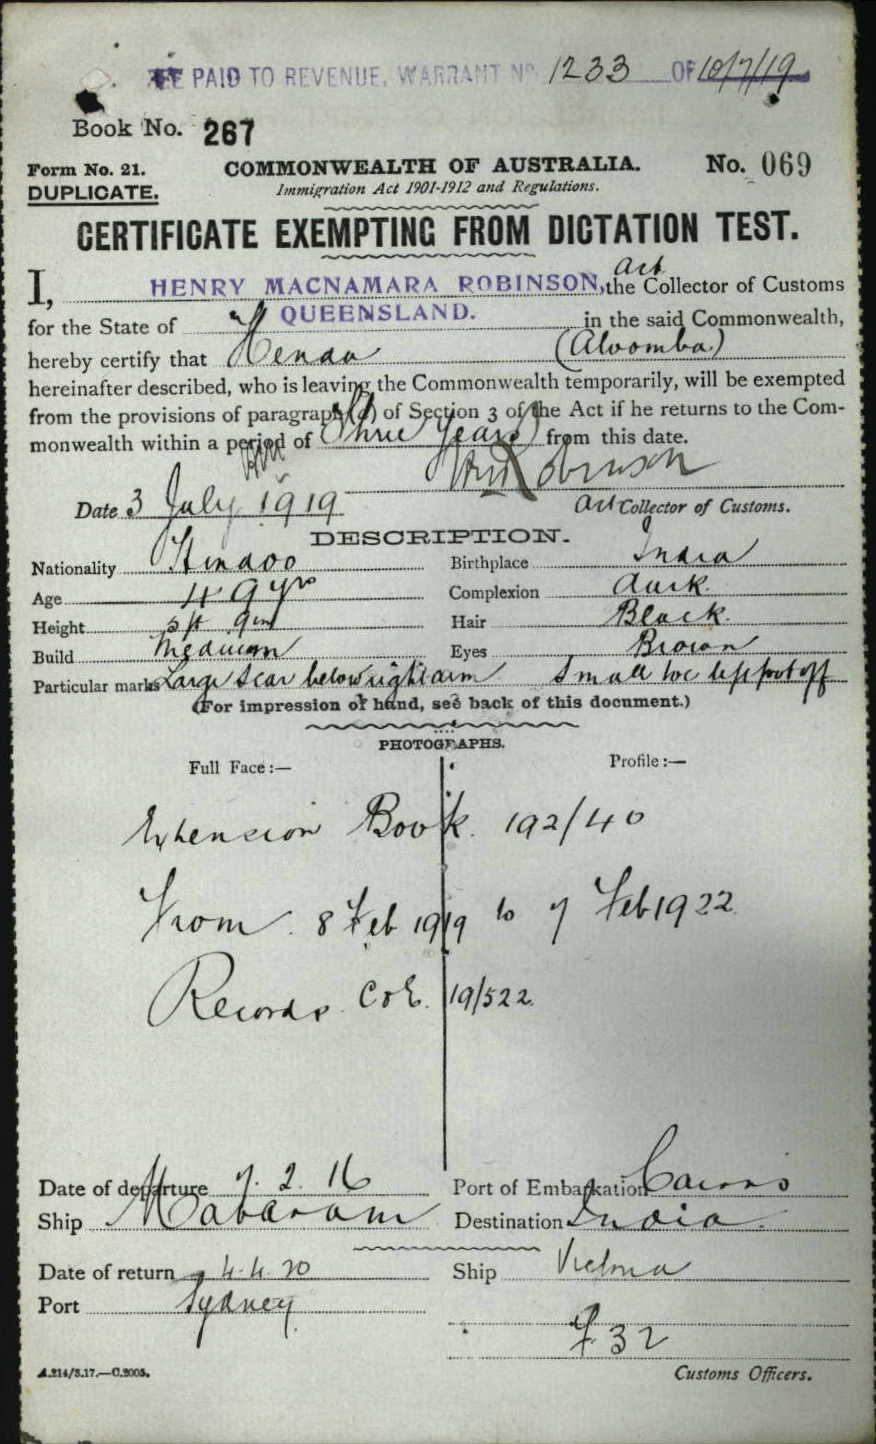 FEE PAID TO REVENUE. WARRANT No 1233 OF 10/7/19
Book No. 267
Form No. 21. COMMONWEALTH OF AUSTRALIA. No. 069
DUPLICATE. Immigration Act 1901-1912 and Regulations.
CERTIFICATE EXEMPTING FROM DICTATION TEST.
I, HENRY MACNAMARA ROBINSON, Act the Collector of Customs
for the State of QUEENSLAND. in the said Commonwealth,
hereby certify that Henda (Aloomba)
hereinafter described, who is leaving the Commonwealth temporarily, will be exempted
from the provisions of paragraph (a) of Section 3 of the Act if he returns to the Com-
monwealth within a period of (Three Years) from this date.
HMR HMRobinson
Date 3 July 1919 Act Collector of Customs.
DESCRIPTION.
Nationality Hindoo Birthplace India
Age 49 yrs Complexion dark.
Height 5ft 9in Hair Black.
Build Medium Eyes Brown
Particular marks Large Scar below right arm Small toe left foot off
(For impression of hand, see back of this document.)
PHOTOGRAPHS.
Full Face:— Profile:—
Extension Book. 192/40
From 8 Feb 1919 to 7 Feb 1922
Records C&E. 19/522.
Date of departure 7. 2. 16 Port of Embarkation Cairns
Ship Mataram Destination India.
Date of return 4.4.20 Ship Victoria
Port Sydney.
F32
A.214/3.17.—C.2005. Customs Officers.